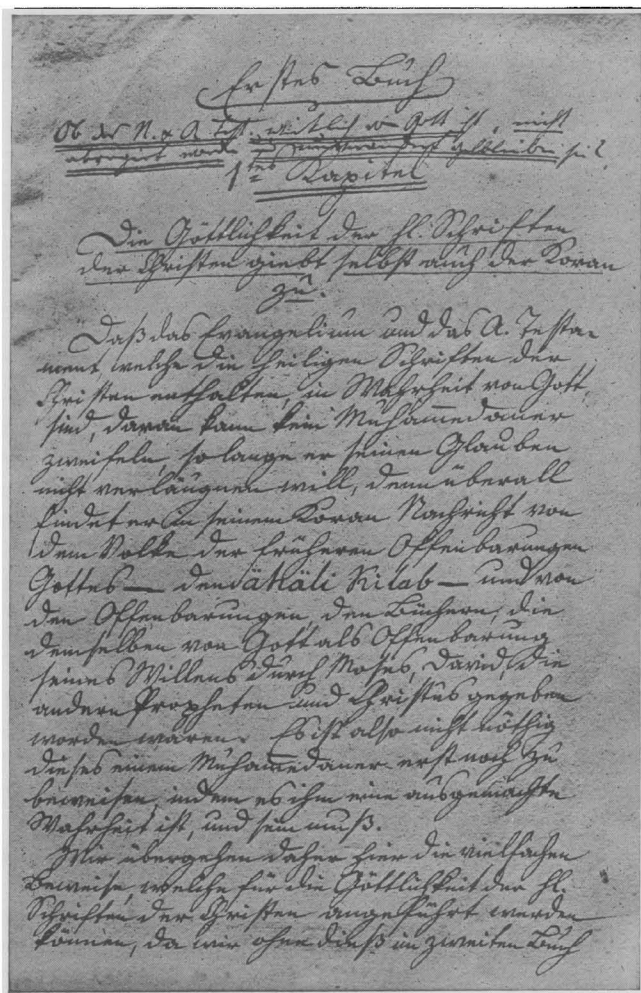 Erstes Buch
Ob das N. & A. Test. wirklich von Gott ist, nicht
abrogiert worden u. unverändert geblieben sei?
1tes Kapitel
Die Göttlichkeit der hl. Schriften
der Christen giebt selbst auch der Koran
zu.
Daß das Evangelium und das A. Testa-
ment, welche die heiligen Schriften der
Christen enthalten, in Wahrheit von Gott
sind, daran kann kein Muhammedaner
zweifeln, so lange er seinen Glauben
nicht verläugnen will, denn überall
findet er in seinem Koran Nachricht von
dem Volke der früheren Offenbarungen
Gottes — den ähäli Kitab — und von
den Offenbarungen, den Büchern, die
demselben von Gott als Offenbarung
seines Willens durch Moses, David, die
andern Propheten und Christus gegeben
worden waren. Es ist also nicht nöthig
dieses einem Muhammedaner erst noch zu
beweisen, indem es ihm eine ausgemachte
Wahrheit ist, und sein muß.
Wir übergehen daher hier die vielfachen
Beweise, welche für die Göttlichkeit der hl.
Schriften der Christen angeführt werden
können, da wir ohne dieß im zweiten Buch